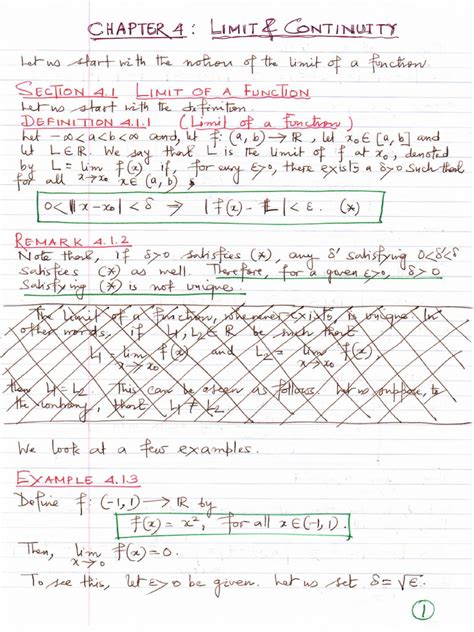 CHAPTER 4: LIMIT & CONTINUITY
Let us start with the notion of the limit of a function.
SECTION 4.1 LIMIT OF A FUNCTION
Let us start with the definition.
DEFINITION 4.1.1 (Limit of a function)
Let -∞<a<b<∞ and, let f: (a,b)→ℝ, let x₀∈[a,b] and
let L∈ℝ. We say that L is the limit of f at x₀, denoted
by L = lim x→x₀ f(x) if, for every ε>0, there exists a δ>0 such that
for all x∈(a,b),
0<|x-x₀|<δ ⇒ |f(x)-L|<ε. (*)
REMARK 4.1.2
Note that, if δ>0 satisfies (*), any δ' satisfying 0<δ'<δ
satisfies (*) as well. Therefore, for a given ε>0, δ>0
satisfying (*) is not unique.
The limit of a function, whenever exists, is unique. In
other words, if L₁, L₂∈ℝ be such that
L₁ = lim x→x₀ f(x) and L₂ = lim x→x₀ f(x),
then L₁ = L₂. This can be seen as follows. Let us suppose, to
the contrary, that L₁ ≠ L₂.
We look at a few examples.
EXAMPLE 4.1.3
Define f: (-1,1)→ℝ by
f(x) = x², for all x∈(-1,1).
Then, lim x→0 f(x)=0.
To see this, let ε>0 be given. Let us set δ=√ε.
1